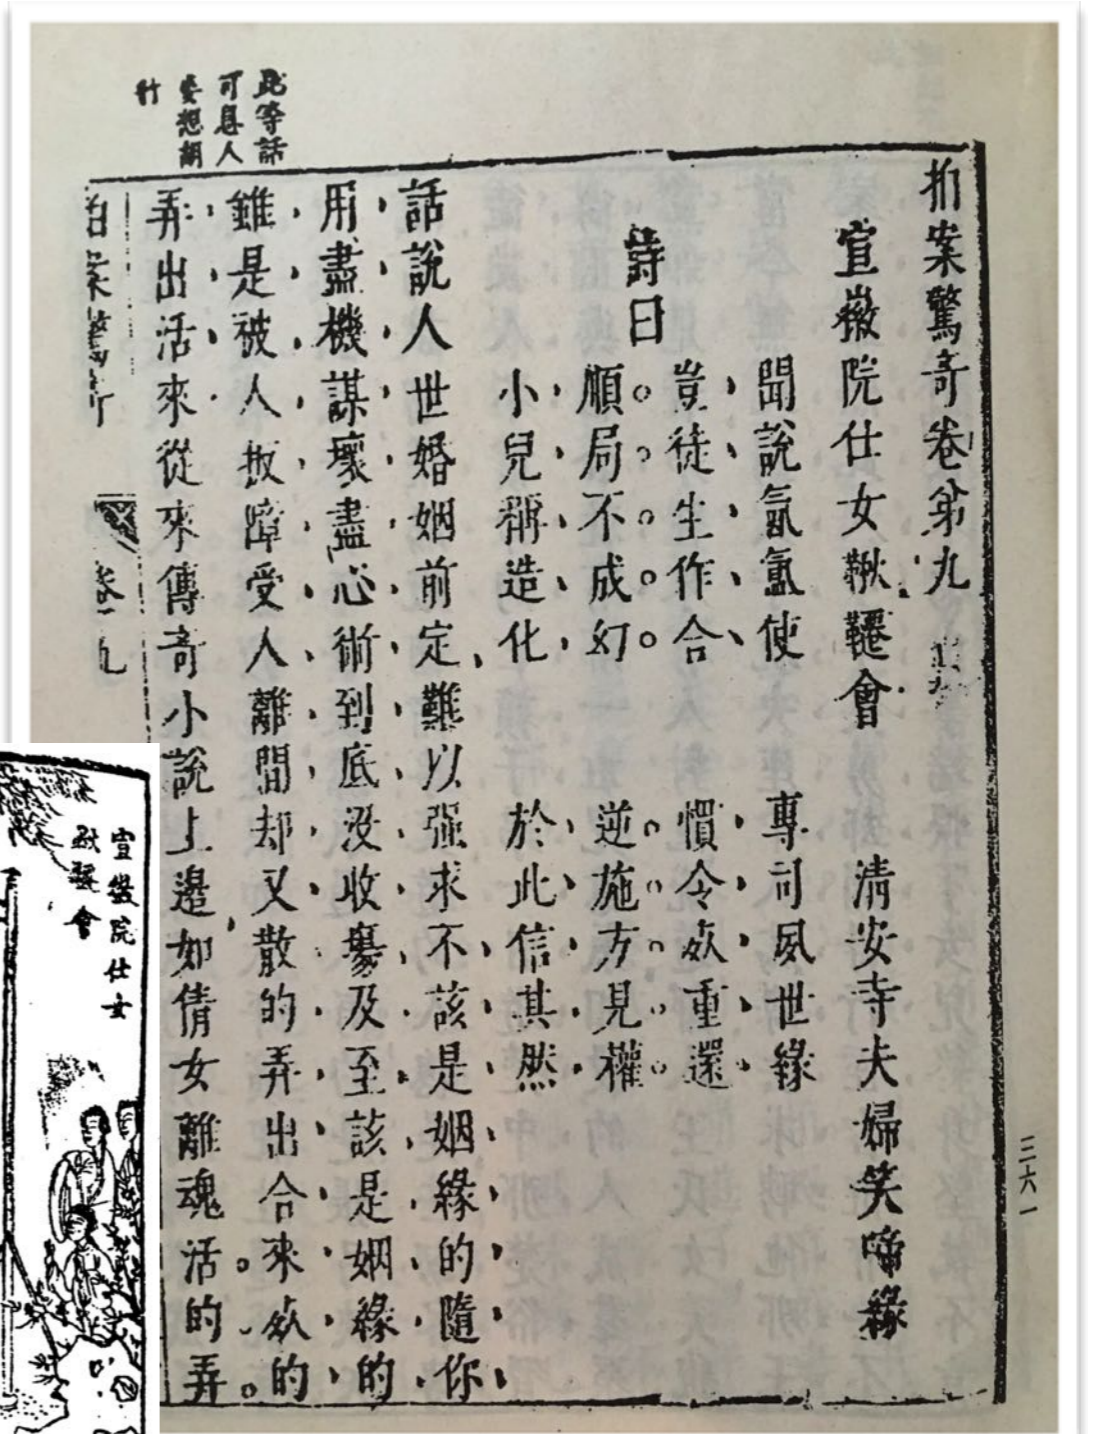 拍案驚奇卷第九
宣徽院仕女鞦韆會　清安寺夫婦笑啼緣
詩曰
聞說氤氳使　專司夙世緣
豈徒生作合　慣令死重還
順局不成幻　逆施方見權
小兒稱造化　於此信其然
話說人世婚姻前定難以强求不該是姻緣的隨你
用盡機謀壞盡心術到底没收塲及至該是姻緣的
雖是被人扳障受人離間却又散的弄出合來死的
弄出活來從來傳奇小說上邊如倩女離魂活的弄
此等話
可息人
妄想胡
行
拍案驚奇　卷九
三六一
宣徽院仕女
鞦韆會